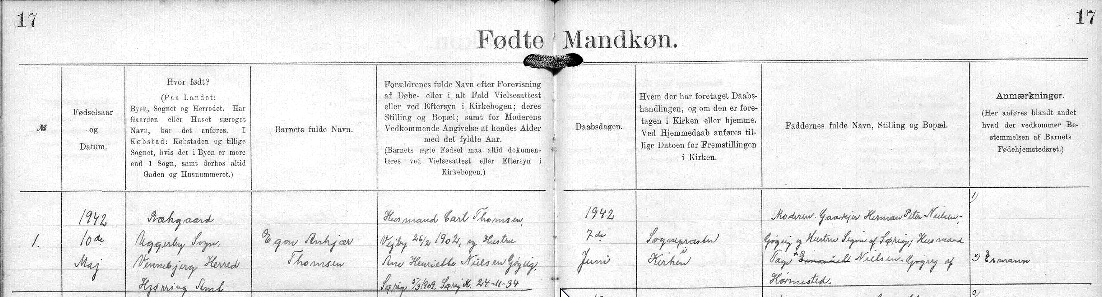 17
17
Fødte Mandkøn.
№
Fødselsaar
og
Datum.
Hvor født?
(Paa Landet:
Byen, Sognet og Herredet. Har
Gaarden eller Huset særeget
Navn, bør det anføres. I
Købstad: Købstaden og tillige
Sognet, hvis det i Byen er mere
end 1 Sogn, samt derhos altid
Gaden og Husnumeret.)
Barnets fulde Navn.
Forældrenes fulde Navn efter Forevisning
af Døbe- eller i alt Fald Vielsesattest
eller ved Eftersyn i Kirkebogen; deres
Stilling og Bopæl; samt for Moderens
Vedkommende Angivelse af hendes Alder
med det fyldte Aar.
(Barnets ægte Fødsel maa altid dokumen-
teres ved Vielsesattest eller Eftersyn i
Kirkebogen.)
Daabsdagen.
Hvem der har foretaget Daabs-
handlingen, og om den er fore-
tagen i Kirken eller hjemme.
Ved Hjemmedaab anføres til-
lige Datoen for Fremstillingen
i Kirken.
Faddernes fulde Navn, Stilling og Bopæl.
Anmærkninger.
(Her anføres blandt andet
hvad der vedkommer Be-
stemmelsen af Barnets
Fødehjemstedsret.)
1.
1942
10de
Maj
Bækgaard
Uggerby Sogn
Vennebjerg Herred
Hjørring Amt
Egon Ankjær
Thomsen
Husmand Carl Thomsen,
Vejby 1902, og Hustru
Ane Henriette Nielsen
1942
7de
Juni
Sognepræsten
Kirken
Moderen. Gaardejer Herman Peter Nielsen
og Hustru Signe af Sørig, Husmand
Nielsen af
1)
2)